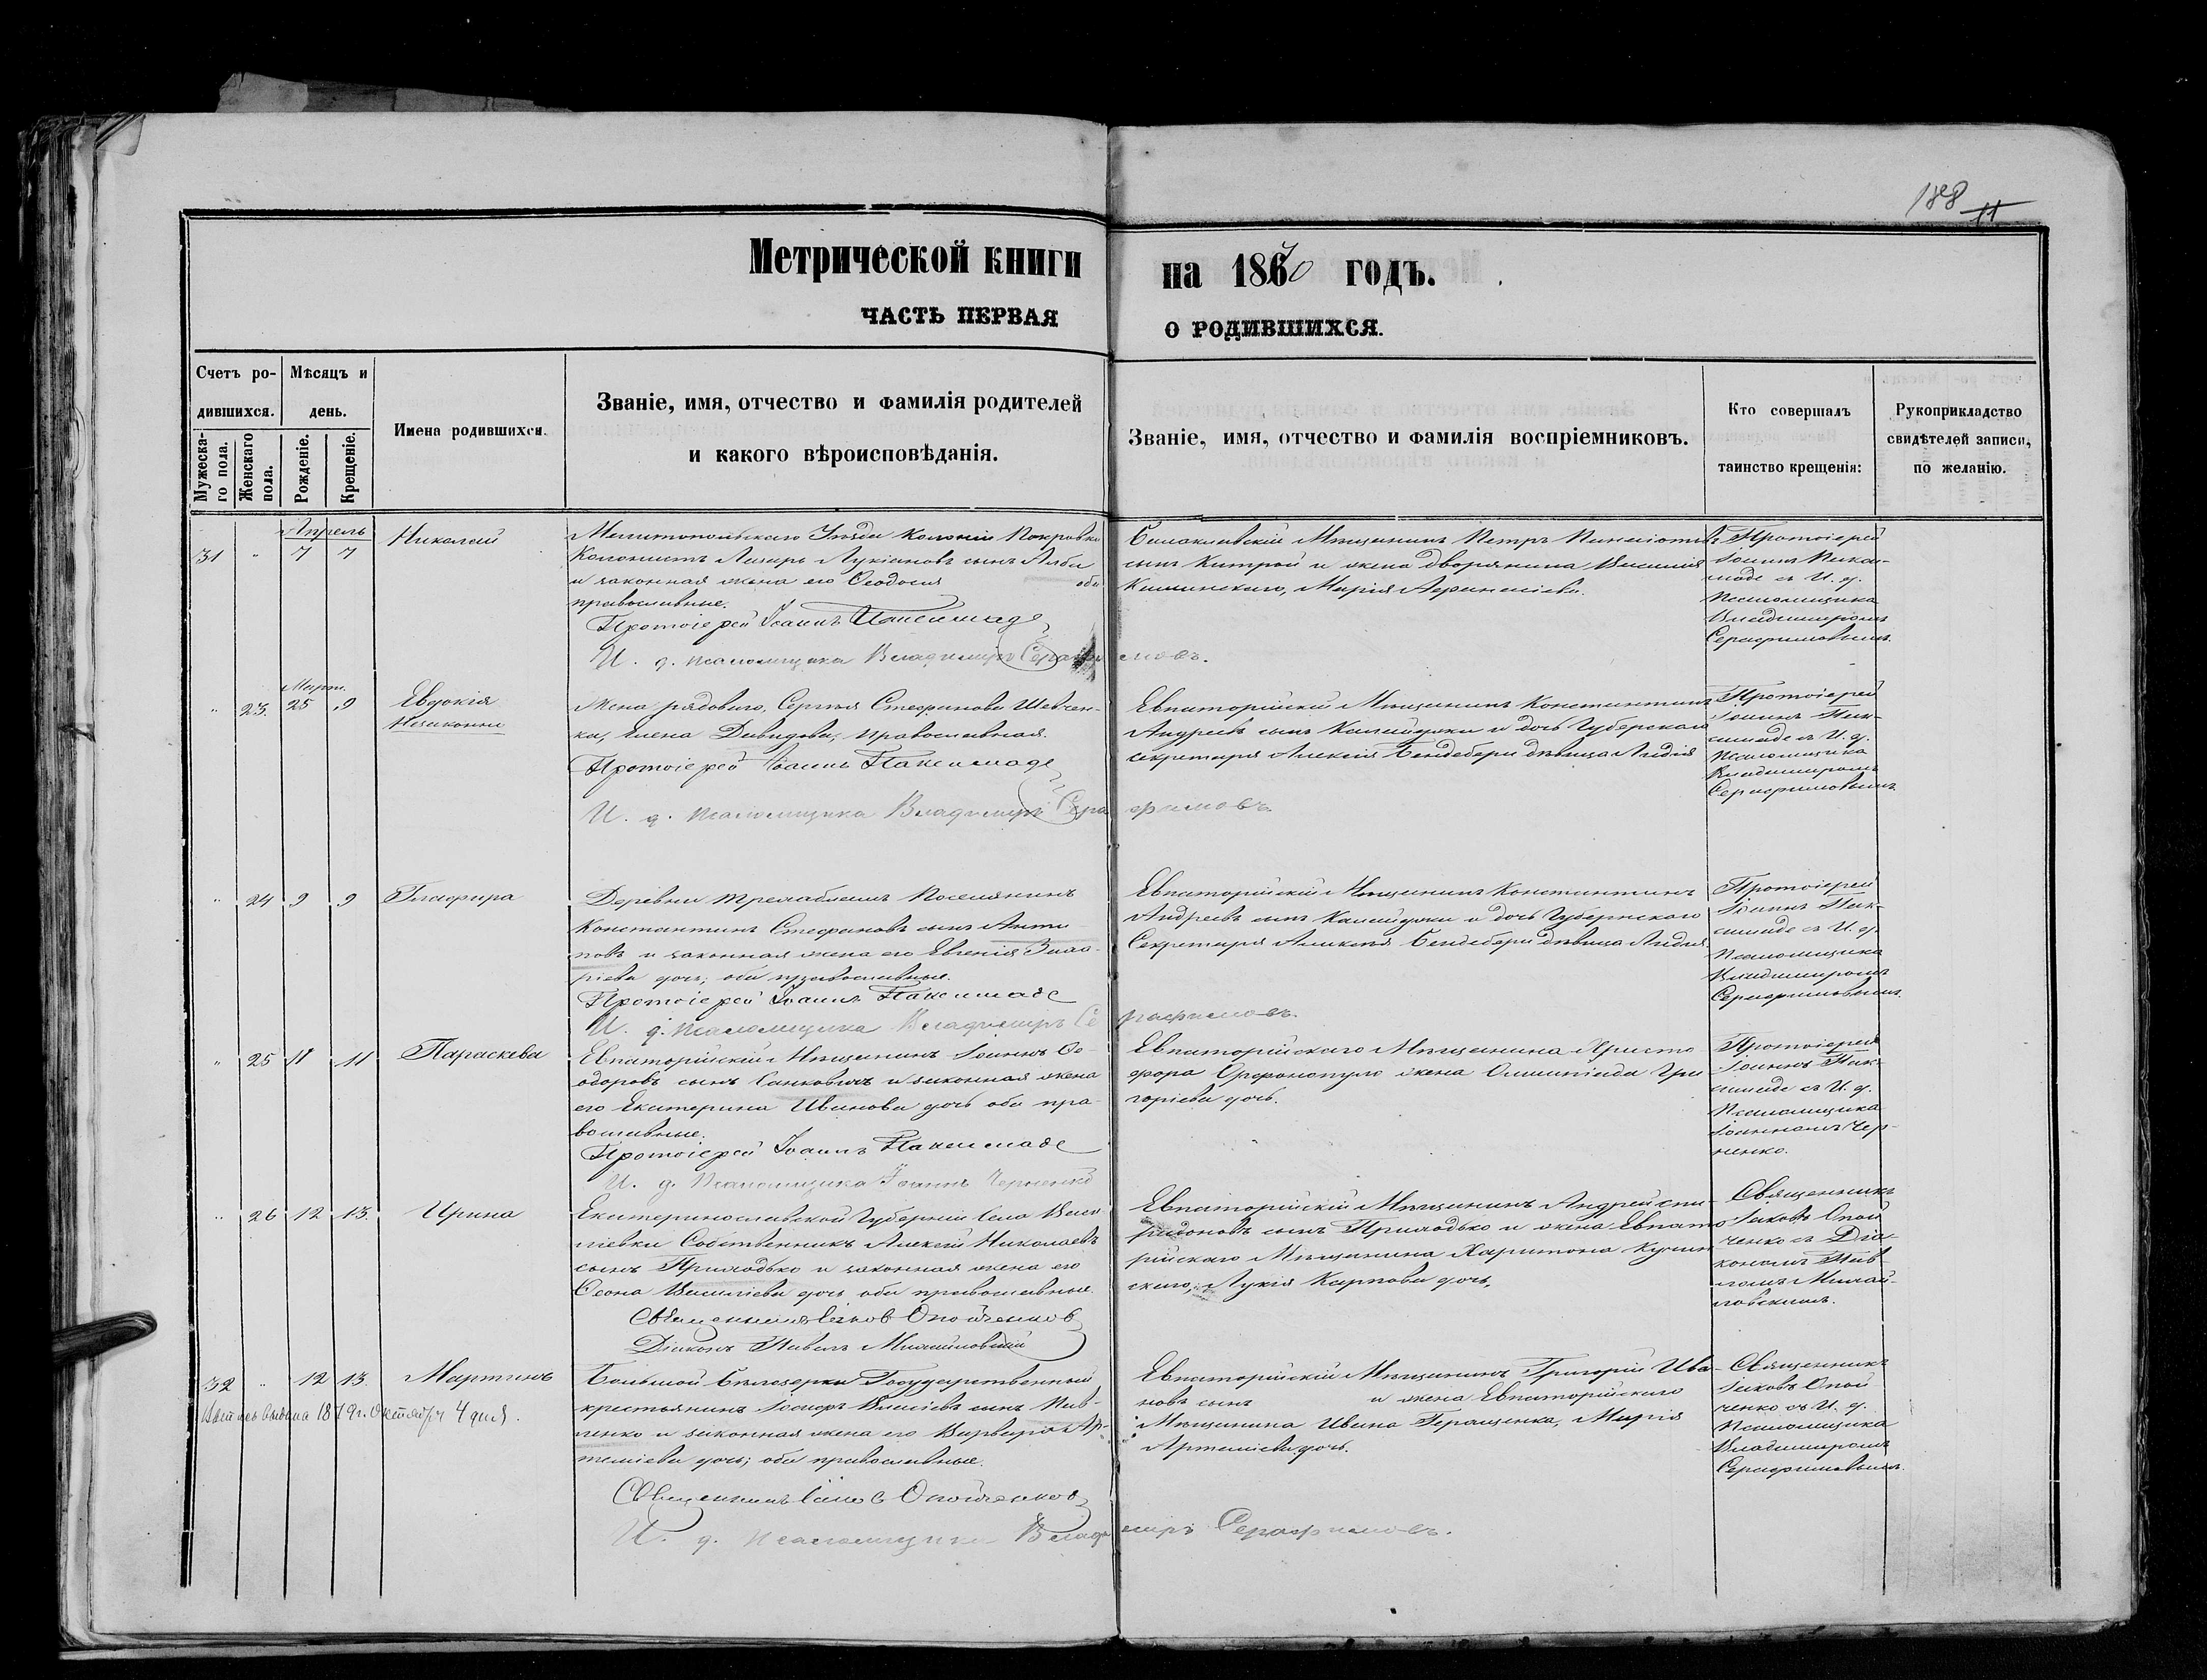 188
11
Метрической книги на 1870 годъ.
ЧАСТЬ ПЕРВАЯ О РОДИВШИХСЯ.
Счетъ ро-
дившихся.
Мужеска-
го пола.
Женскаго
пола.
Мѣсяцъ и
день.
Рожденіе.
Крещеніе.
Имена родившихся.
Званіе, имя, отчество и фамилія родителей
и какого вѣроисповѣданія.
Званіе, имя, отчество и фамилія воспріемниковъ.
Кто совершалъ
таинство крещенія:
Рукоприкладство
свидѣтелей записи,
по желанію.
Апрель
31 " 7 7
Николай
Мелитопольскаго Уѣзда Колоніи Покровки
Колонистъ Лазарь Лукіановъ сынъ
и законная жена его Ѳеодосія оба
православные.
Протоіерей Іоаннъ Паксимаде
И. д. псаломщика Владимиръ Серафимовъ.
Мѣщанинъ Петръ
сынъ и жена дворянина Василія
Марія
Протоіерей
Іоаннъ Пакси-
маде съ И. д.
Псаломщика
Владимиромъ
Серафимовымъ
Март.
" 23. 25 9
Евдокія
Незаконно
Жена рядоваго, Сергѣя Стефанова Шевчен-
ка, Елена Давидова, православная.
Протоіерей Іоаннъ Паксимаде
И. д. псаломщика Владимиръ Серафимовъ.
Евпаторійскій Мѣщанинъ Константинъ
Андреевъ сынъ и дочь Губернскаго
секретаря Алексія Бендебери дѣвица Лидія
Протоіерей
Іоаннъ Пак-
симаде съ И. д.
Псаломщика
Владимиромъ
Серафимовымъ
" 24 9 9
Глафира
Деревни Поселянинъ
Константинъ Стефановъ сынъ Анти-
повъ и законная жена его Евгенія
дочь; оба православные.
Протоіерей Іоаннъ Паксимаде
И. д. псаломщика Владимиръ Серафимовъ.
Евпаторійскій Мѣщанинъ Константинъ
Андреевъ сынъ и дочь Губернскаго
Секретаря Алексѣя Бендебери дѣвица Лидія
Протоіерей
Іоаннъ Пак-
симаде съ И. д.
Псаломщика
Владимиромъ
Серафимовымъ.
" 25 11 11
Параскева
Евпаторійскій Мѣщанинъ Іоаннъ Ѳе-
одоровъ сынъ и законная жена
его Екатерина Иванова дочь оба пра-
вославные.
Протоіерей Іоаннъ Паксимаде
И. д. Псаломщика Іоаннъ Черненко
Евпаторійскаго Мѣщанина Христо
фора жена Олимпіада Гри
горіева дочь.
Протоіерей
Іоаннъ Пак-
симаде съ И. д.
Псаломщика
Іоанномъ Чер-
ненко.
" 26 12 13.
Ирина
Екатеринославской Губерніи Села Васи
лiевки Собственникъ Алексѣй Николаевъ
сынъ Приходько и законная жена его
Василіева дочь оба православные.
Священникъ Іаковъ Опойченковъ
Діаконъ Павелъ Михайловскій
Евпаторійскій Мѣщанинъ Андрей Спи-
ридоновъ сынъ Приходько и жена Евпато
рійскаго Мѣщанина Харитона
Лукія Карпова дочь.
Священникъ
Іаковъ Опой
ченко съ Діа-
кономъ Пав-
ломъ Михай-
ловскимъ.
32 " 12 13
Мартинъ
Большой Бѣлозерки Государственный
крестьянинъ сынъ Пав-
ленко и законная жена его Варвара Ар-
теміева дочь; оба православные.
Священникъ Іаковъ Опойченковъ
И. д. псаломщика Владимиръ Серафимовъ.
Евпаторійскій Мѣщанинъ Григорій Ива-
новъ сынъ и жена Евпаторійскаго
Мѣщанина Ивана Геращенка, Марія
Артеміева дочь.
Священникъ
Іаковъ Опой
ченко съ И. д.
Псаломщика
Владимиромъ
Серафимовымъ.
выдана 1879г. Октября 4 дня.